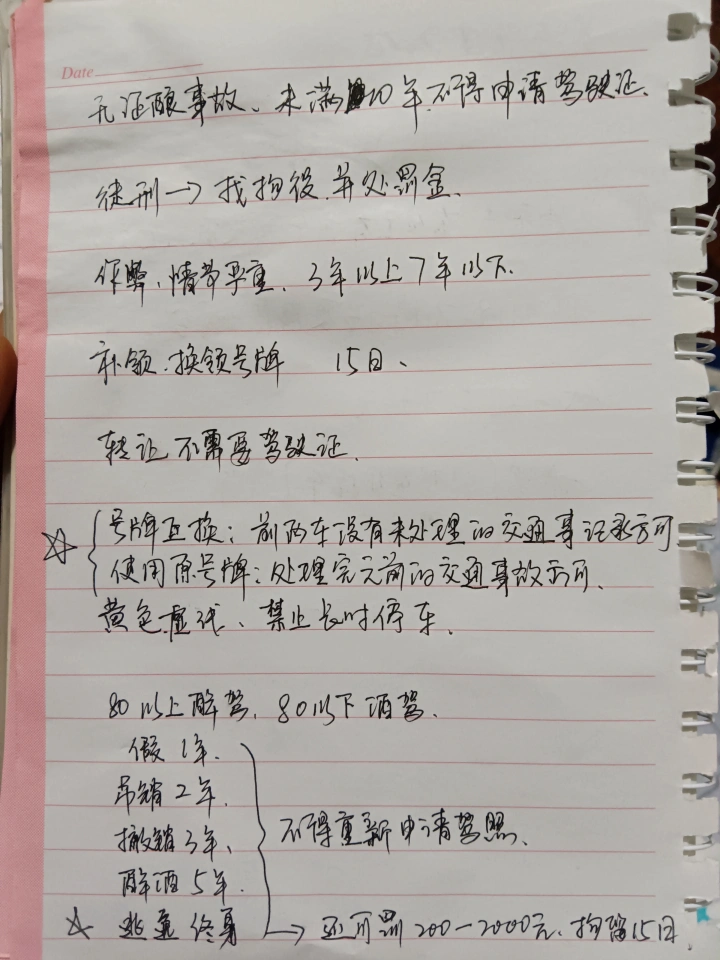 Date
无证酿事故、未满10年不得申请驾驶证、
徒刑→找拘役、并处罚金、
作弊、情节严重、3年以上7年以下、
补领、换领号牌 15日、
转让不需要驾驶证、
☆ 号牌互换：前两车没有未处理的交通事记录方可
使用原号牌：处理完之前的交通事故方可、
黄色虚线、禁止长时停车、
80以上醉驾、80以下酒驾、
假1年、
吊销2年、
撤销3年、 不得重新申请驾照、
醉酒5年、
☆ 逃逸终身 → 还可罚200-2000元、拘留15日